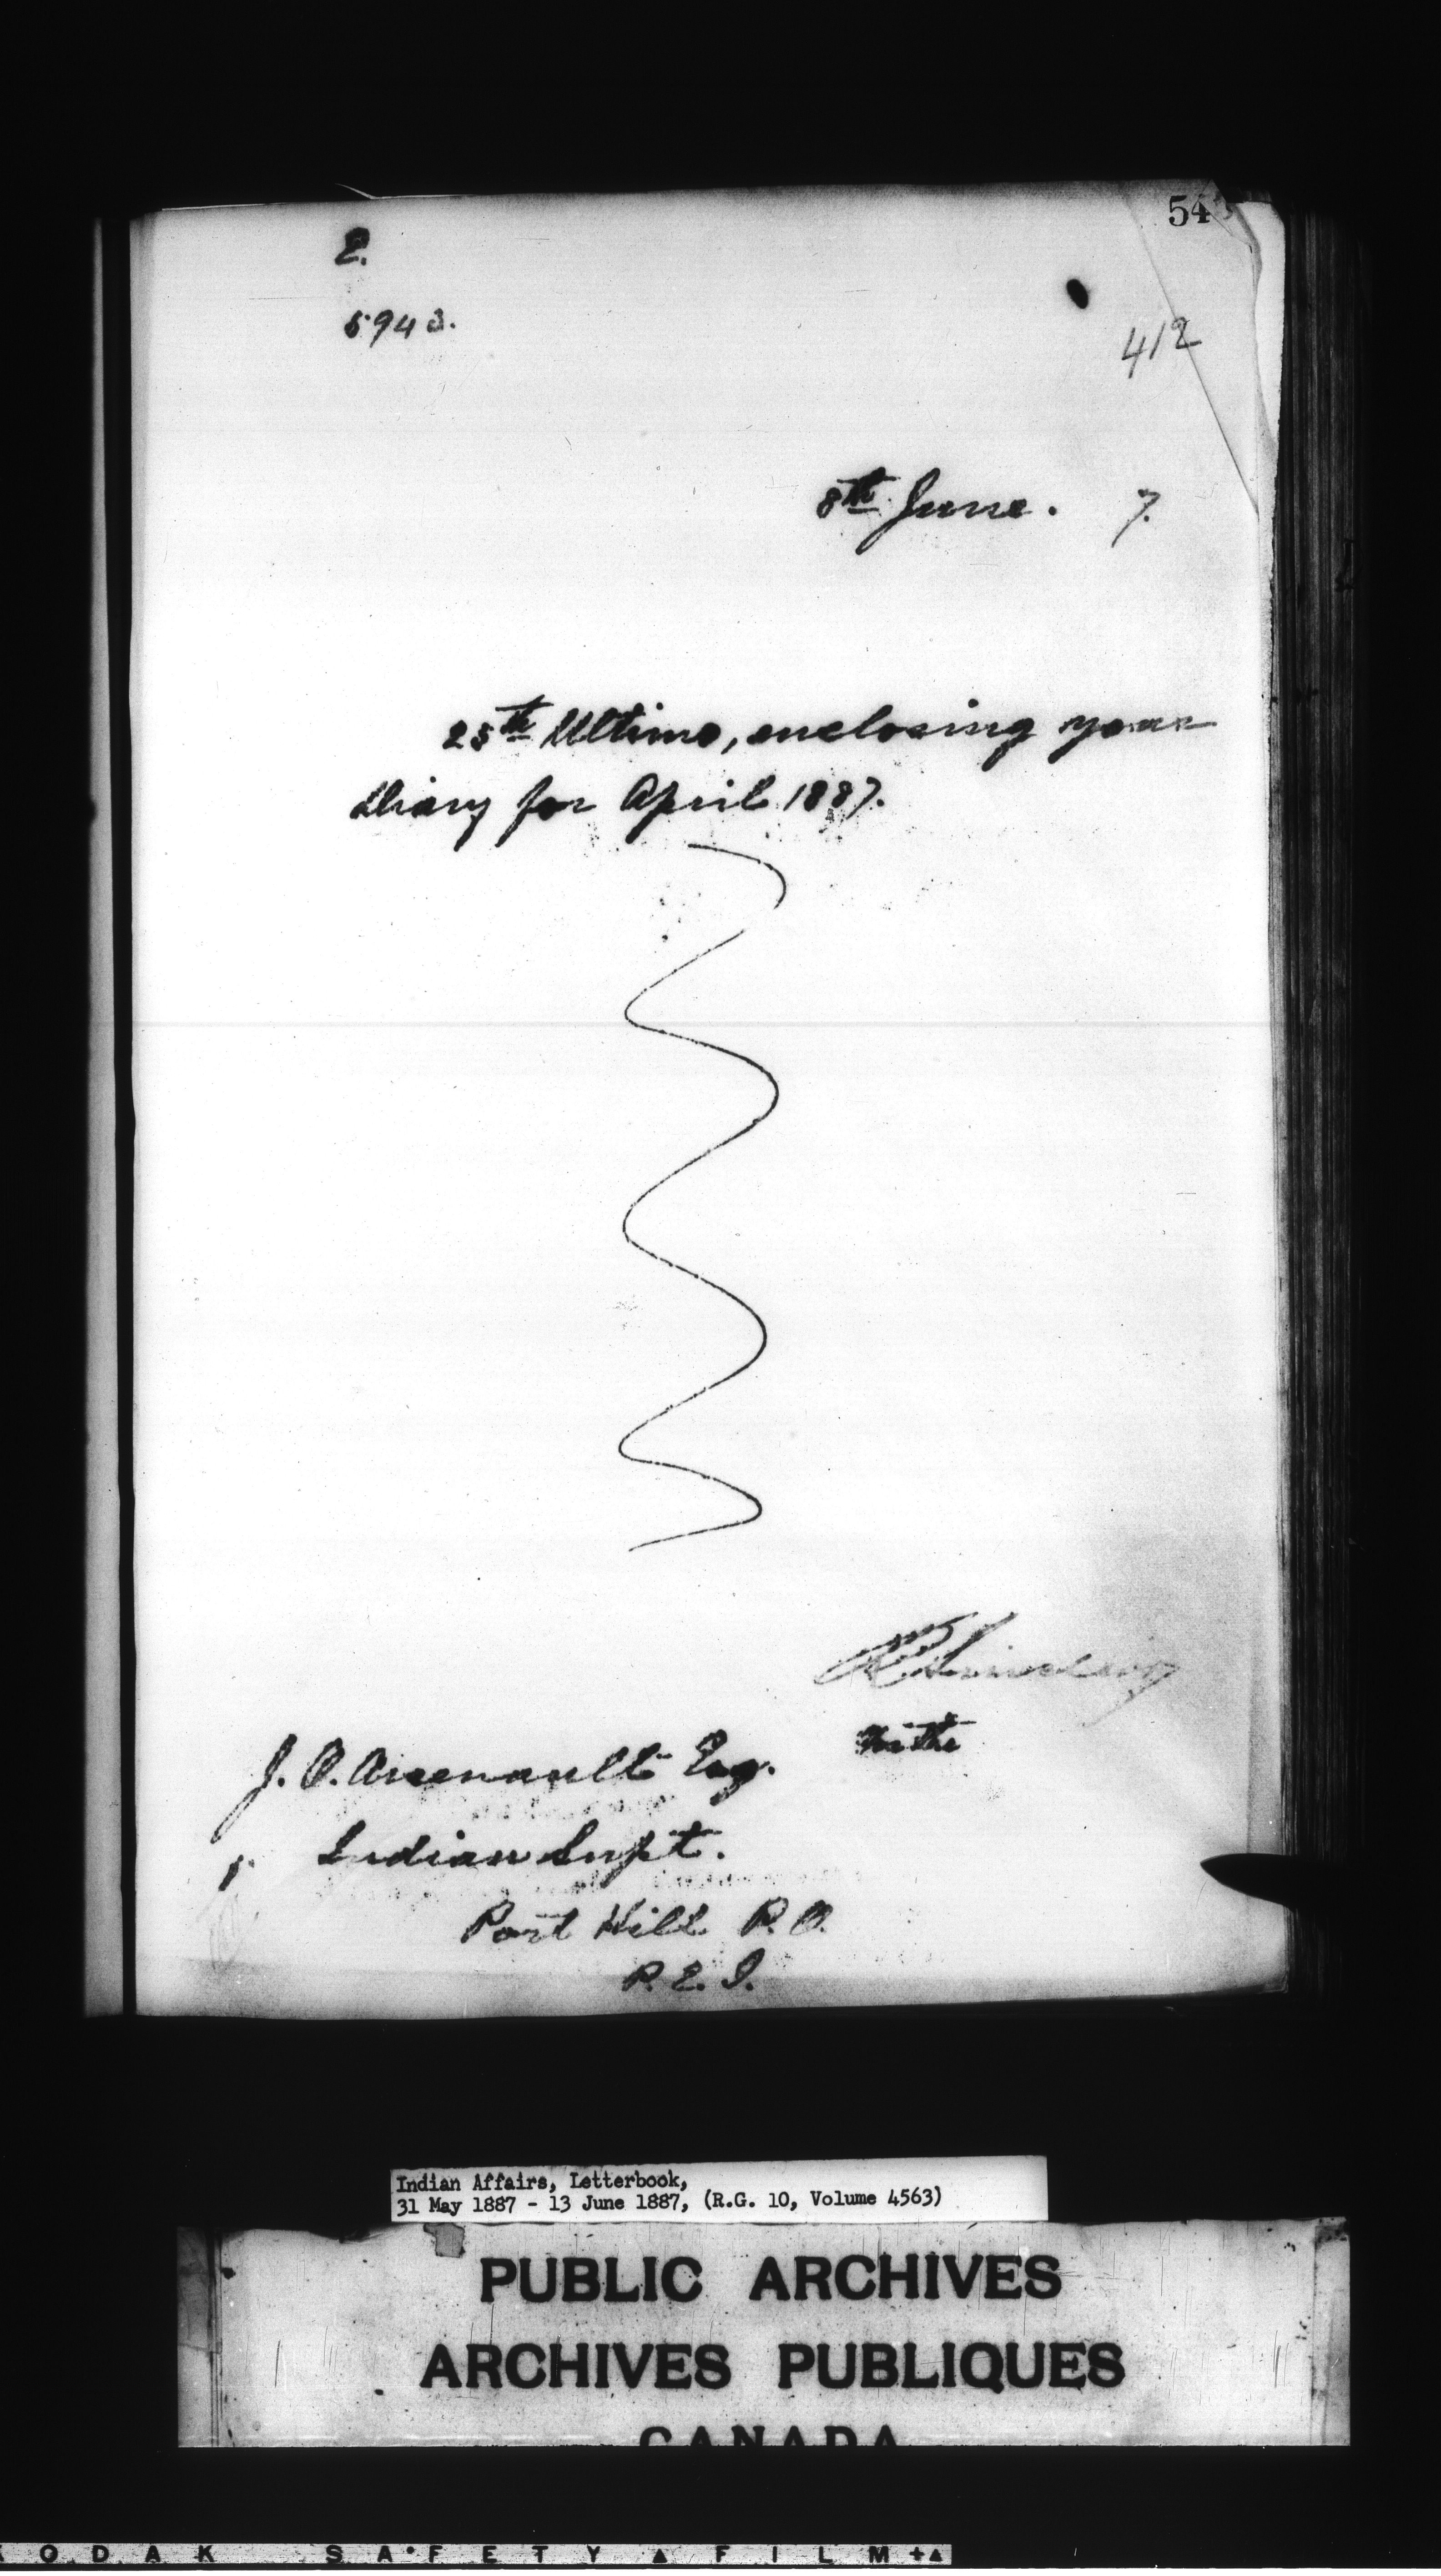 54
E.
5943.
412
8th June. 7.
25th Ultimo, enclosing your
Diary for April 1887.
R Sinclair
For the
J. O. Arsenault Esq.
Indian Supt.
Port Hill P.O.
P.E.I.
Indian Affairs, Letterbook,
31 May 1887 - 13 June 1887, (R.G. 10, Volume 4563)
PUBLIC ARCHIVES
ARCHIVES PUBLIQUES
CANADA
KODAK SAFETY FILM